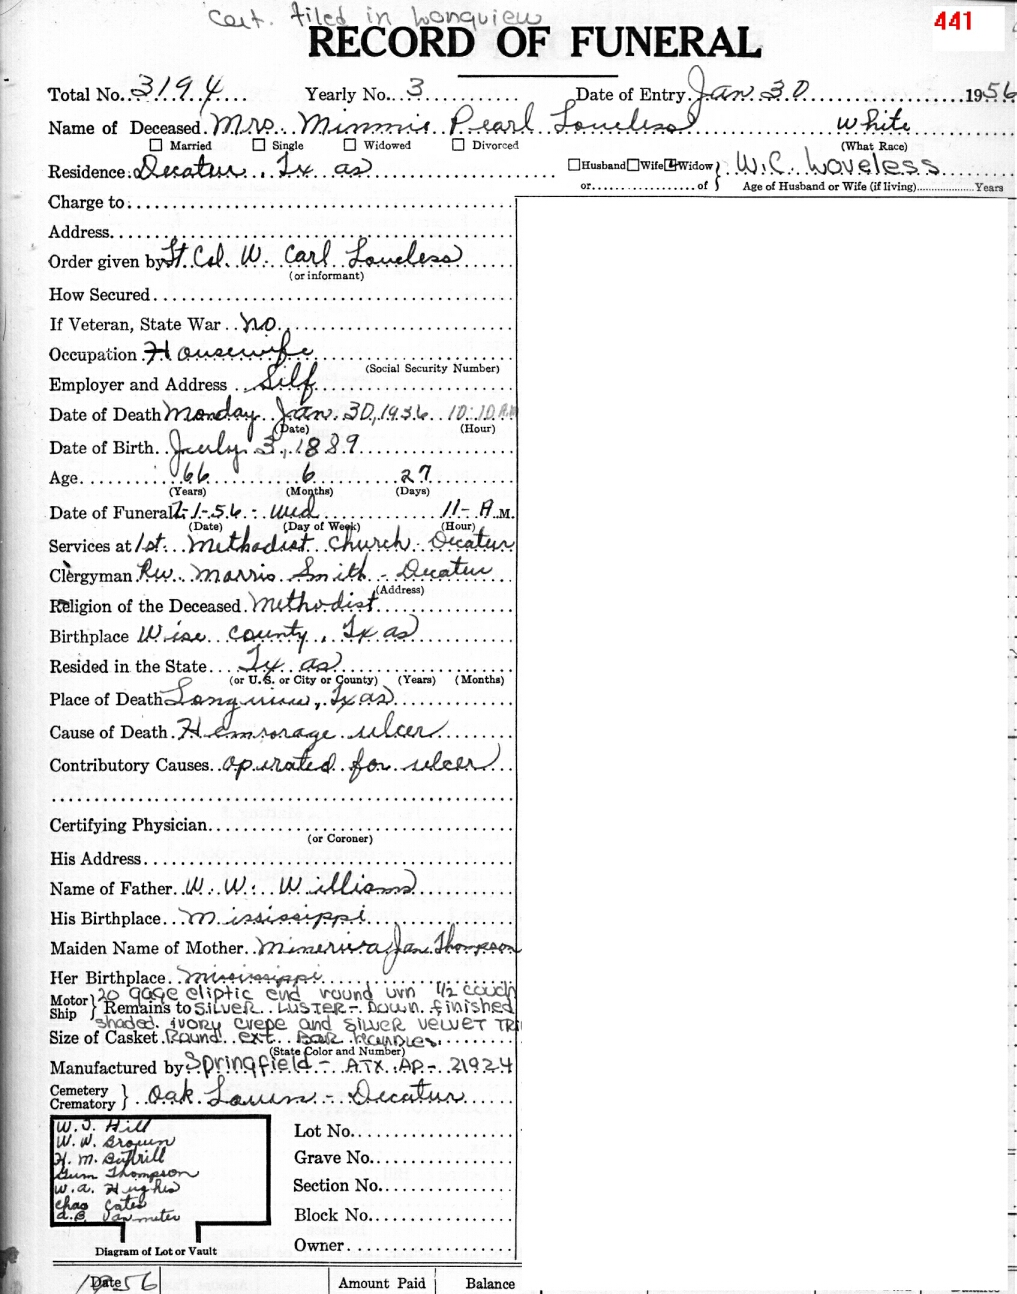 Cert. filed in Longview
441
RECORD OF FUNERAL
Total No. 3194 Yearly No. 3 Date of Entry Jan 30 1956
Name of Deceased Mrs. Minnie Pearl Loveless white
Married Single Widowed Divorced (What Race)
Residence: Decatur, Texas Husband Wife Widow } W.C. Loveless
or of Age of Husband or Wife (if living) Years
Charge to
Address
Order given by Lt. Col. W. Carl Loveless
(or informant)
How Secured
If Veteran, State War no
Occupation Housewife
(Social Security Number)
Employer and Address Self
Date of Death Monday Jan. 30, 1956 10:10 AM
(Date) (Hour)
Date of Birth July 3, 1889
Age 66 6 27
(Years) (Months) (Days)
Date of Funeral 2-1-56 - Wed 11- A.M.
(Date) (Day of Week) (Hour)
Services at 1st. Methodist Church Decatur
Clergyman Rev. Morris Smith - Decatur
(Address)
Religion of the Deceased Methodist
Birthplace Wise County, Texas
Resided in the State Texas
(or U.S. or City or County) (Years) (Months)
Place of Death Longview, Texas
Cause of Death Hemorage ulcer
Contributory Causes operated for ulcer
Certifying Physician
(or Coroner)
His Address
Name of Father W. W. Williams
His Birthplace Mississippi
Maiden Name of Mother Minerva Jan Thompson
Her Birthplace Mississippi
20 gage eliptic end round urn 1/2 couch
Motor Ship } Remains to SILVER LUSTER - Down finished
shaded ivory crepe and silver velvet TRI
Size of Casket Round ext. BAR Handles
(State Color and Number)
Manufactured by Springfield - ATX. AP- 21924
Cemetery Crematory } Oak Lawn - Decatur
W. J. Hill
W. W. Brown
H. M. Buttrill
Thompson
W. A. Hughes
Chas Cates
Vanmeter
Lot No.
Grave No.
Section No.
Block No.
Owner
Diagram of Lot or Vault
Date 1956 Amount Paid Balance